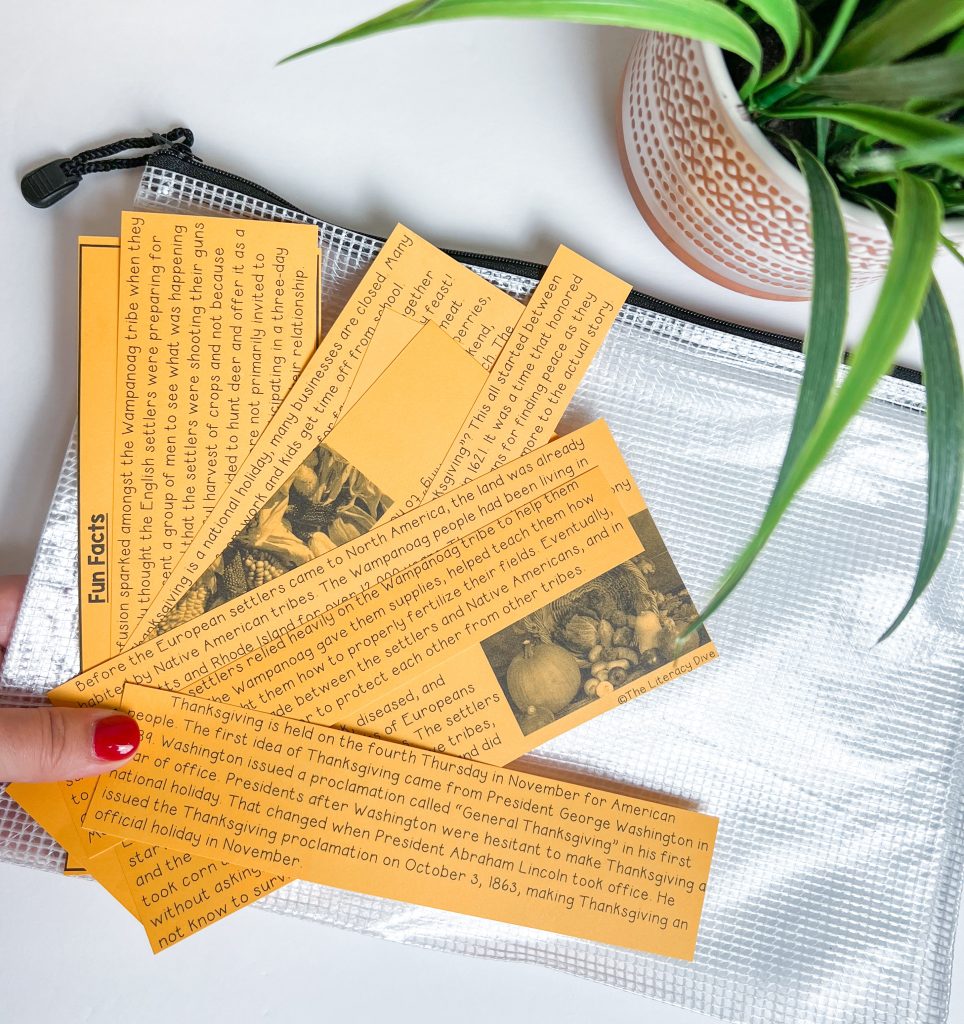 Fun Facts
fusion sparked amongst the Wampanoag tribe when they
y thought the English settlers were preparing for
ent a group of men to see what was happening
that the settlers were shooting their guns
ul harvest of crops and not because
ded to hunt deer and offer it as a
re not primarily invited to
icipating in a three-day
eir relationship
ksgiving is a national holiday, many businesses are closed. Many
work and kids get time off from school
gether
feast!
meat
berries,
kend,
The
ksgiving"? This all started between
1621. It was a time that honored
ns for finding peace as they
more to the actual story
Before the European settlers came to North America, the land was already
habited by Native American tribes. The Wampanoag people had been living in
ts and Rhode Island for over 12,000
settlers relied heavily on the Wampanoag tribe to help them
he Wampanoag gave them supplies, helped teach them how
ht them how to properly fertilize their fields. Eventually,
de between the settlers and Native Americans, and in
to protect each other from other tribes.
ny
diseased, and
s of Europeans
The settlers
e tribes,
nd did
©The Literacy Dive
Thanksgiving is held on the fourth Thursday in November for American
people. The first idea of Thanksgiving came from President George Washington in
89. Washington issued a proclamation called "General Thanksgiving" in his first
ar of office. Presidents after Washington were hesitant to make Thanksgiving a
national holiday. That changed when President Abraham Lincoln took office. He
issued the Thanksgiving proclamation on October 3, 1863, making Thanksgiving an
official holiday in November.
star
and the
took corn
without asking
not know to surv